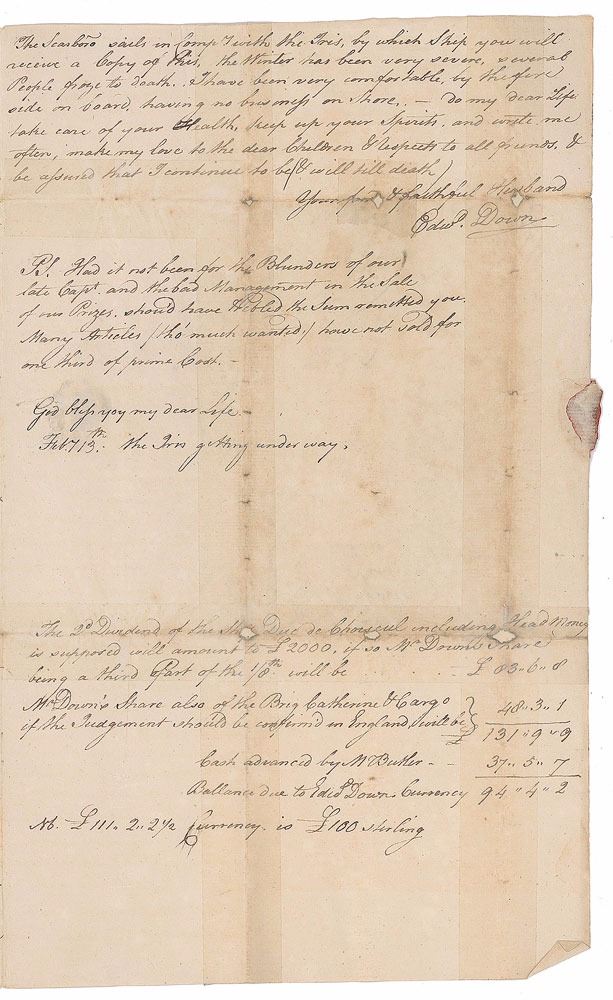 The Scarbro sails in Comp.y with the Iris, by which Ship you will
receive a Copy of this, the Winter has been very severe, several
People froze to death. I have been very comfortable by the fire
side on board, having no business on Shore. — Do my dear Life
take care of your Health, keep up your Spirits, and write me
often, make my love to the dear Children & respects to all friends, &
be assured that I continue to be (& will till death)
Your fond & faithful Husband
Edwd. Down
PS. Had it not been for the Blunders of our
late Capt. and the bad Management in the Sale
of our Prizes, should have trebled the Sum remitted you.
Many Articles (tho' much wanted) have not sold for
one third of prime Cost. —
God bless you my dear Life —
Feb.y 13th. the Iris getting under way.
The 2d Dividend of the Duc de Choiseul including Head Money
is supposed will amount to £2000, if so Mr Down's Share
being a third Part of the 1/8th will be — £ 83 " 6 " 8
Mr Down's Share also of the Brig Catherine & Cargo } 48 " 3 " 1
if the Judgement should be confirm'd in England, will be } £ 131 " 9 " 9
Cash advanced by Mr Butler - - 37 " 5 " 7
Ballance due to Edwd Down Currency 94 " 4 " 2
Nb. £111 " 2 " 2 1/2 Currency is £100 sterling